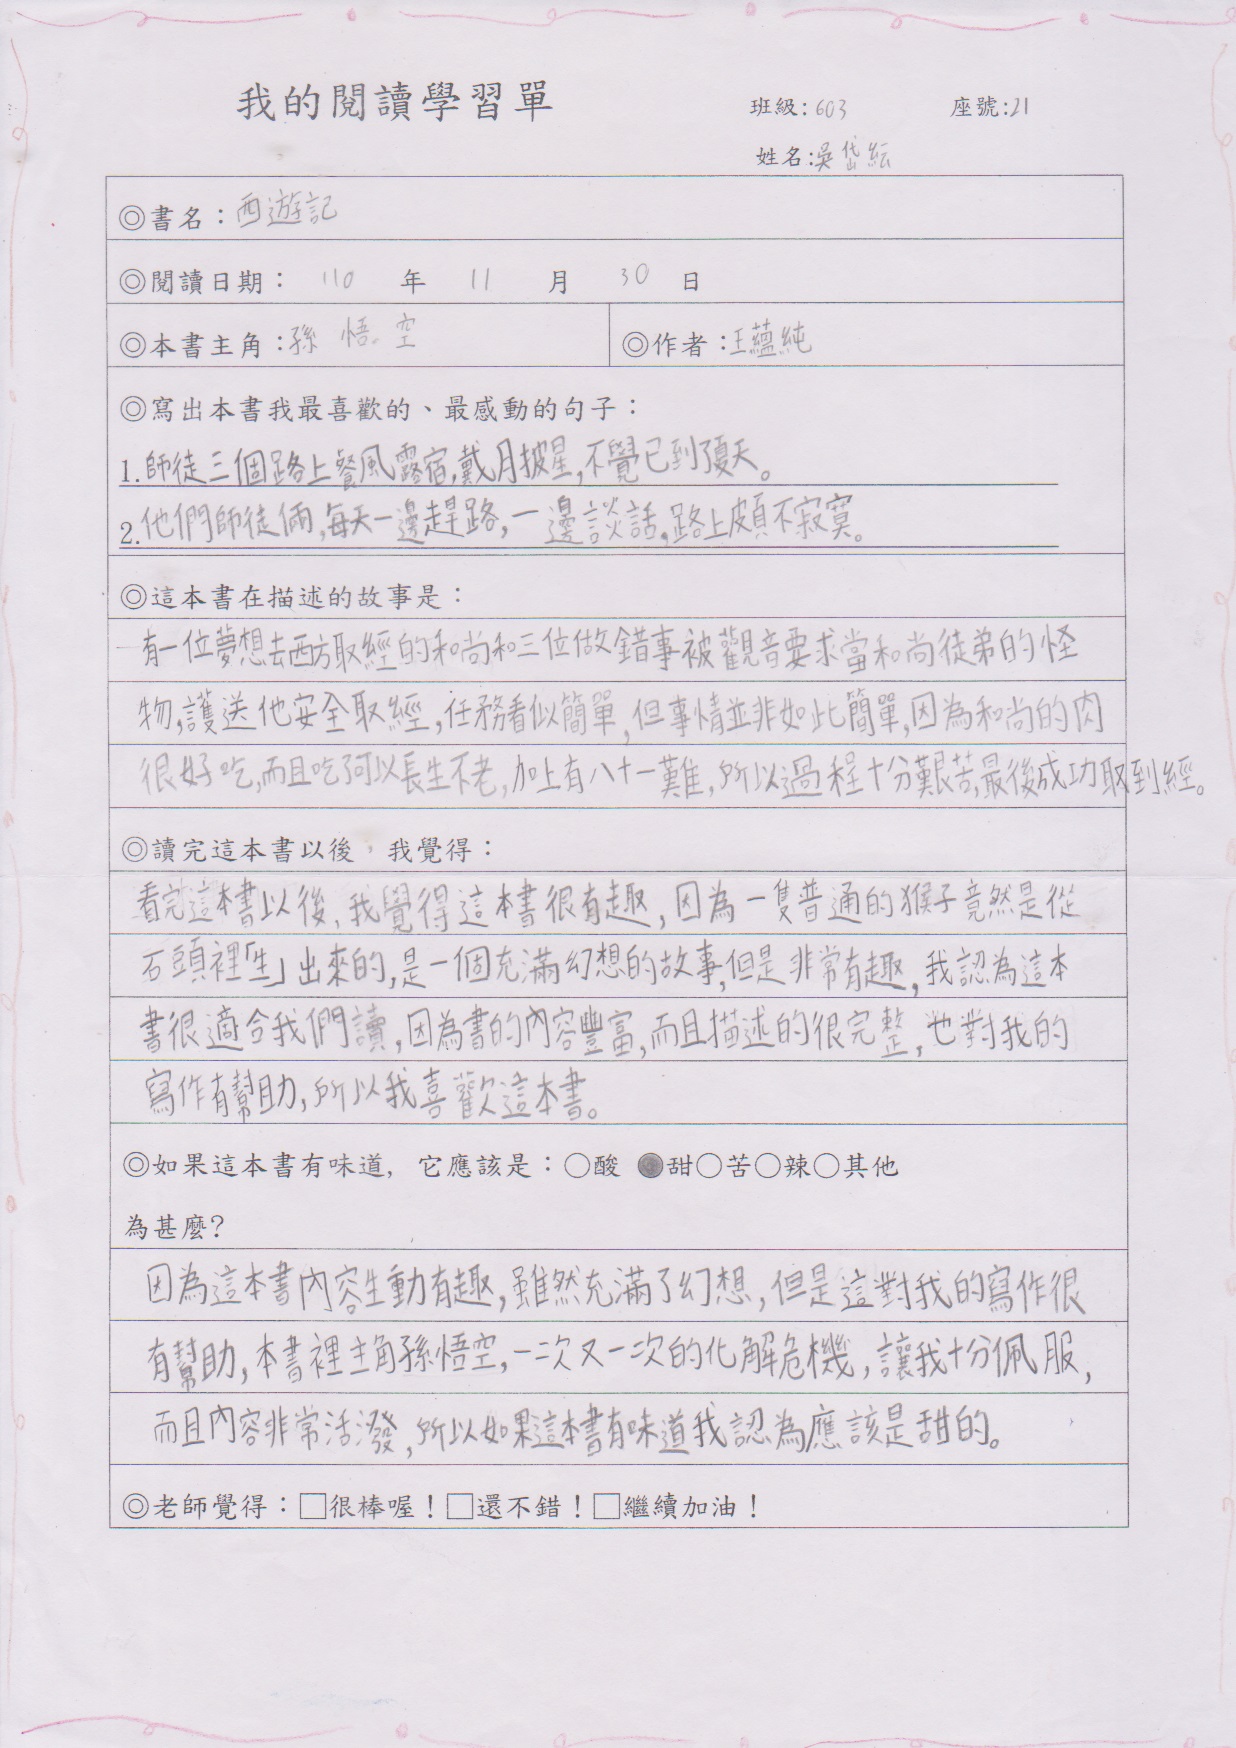 我的閱讀學習單
班級:603 座號:21
姓名:吳岱紜
◎書名：西遊記
◎閱讀日期： 110 年 11 月 30 日
◎本書主角:孫悟空 ◎作者:王蘊純
◎寫出本書我最喜歡的、最感動的句子：
1.師徒三個路上餐風露宿,戴月披星,不覺已到了夏天。
2.他們師徒倆,每天一邊趕路,一邊談話,路上頗不寂寞。
◎這本書在描述的故事是：
有一位夢想去西方取經的和尚和三位做錯事被觀音要求當和尚徒弟的怪
物,護送他安全取經,任務看似簡單,但事情並非如此簡單,因為和尚的肉
很好吃,而且吃了可以長生不老,加上有八十一難,所以過程十分艱苦,最後成功取到經。
◎讀完這本書以後，我覺得：
看完這本書以後,我覺得這本書很有趣,因為一隻普通的猴子竟然是從
石頭裡「生」出來的,是一個充滿幻想的故事,但是非常有趣,我認為這本
書很適合我們讀,因為書的內容豐富,而且描述的很完整,也對我的
寫作有幫助,所以我喜歡這本書。
◎如果這本書有味道, 它應該是：○酸 ●甜○苦○辣○其他
為甚麼?
因為這本書內容生動有趣,雖然充滿了幻想,但是這對我的寫作很
有幫助,本書裡主角孫悟空,一次又一次的化解危機,讓我十分佩服,
而且內容非常活潑,所以如果這本書有味道我認為應該是甜的。
◎老師覺得：□很棒喔！□還不錯！□繼續加油！